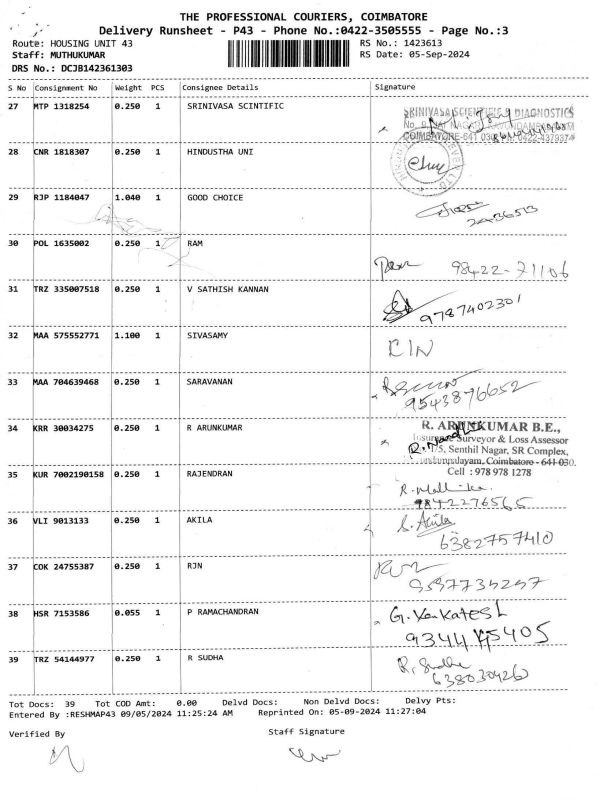 THE PROFESSIONAL COURIERS, COIMBATORE
Delivery Runsheet - P43 - Phone No.:0422-3505555 - Page No.:3
Route: HOUSING UNIT 43 RS No.: 1423613
Staff: MUTHUKUMAR RS Date: 05-Sep-2024
DRS No.: DCJB142361303
S No Consignment No Weight PCS Consignee Details Signature
27 MTP 1318254 0.250 1 SRINIVASA SCINTIFIC
SRINIVASA SCIENTIFIC DIAGNOSTICS
28 CNR 1818307 0.250 1 HINDUSTHA UNI
29 RJP 1184047 1.040 1 GOOD CHOICE
2436513
30 POL 1635002 0.250 1 RAM
Ram 98422-71106
31 TRZ 335007518 0.250 1 V SATHISH KANNAN
9787402301
32 MAA 575552771 1.100 1 SIVASAMY
CIN
33 MAA 704639468 0.250 1 SARAVANAN
9543876652
34 KRR 30034275 0.250 1 R ARUNKUMAR
R. ARUNKUMAR B.E.,
Surveyor & Loss Assessor
1/5, Senthil Nagar, SR Complex,
Coimbatore - 641 030.
Cell : 978 978 1278
35 KUR 7002190158 0.250 1 RAJENDRAN
R. Mallika
9842276565
36 VLI 9013133 0.250 1 AKILA
S. Akila
6382757410
37 COK 24755387 0.250 1 RJN
38 HSR 7153586 0.055 1 P RAMACHANDRAN
G. Venkatesh
39 TRZ 54144977 0.250 1 R SUDHA
R. Sudha
638030426
Tot Docs: 39 Tot COD Amt: 0.00 Delvd Docs: Non Delvd Docs: Delvy Pts:
Entered By :RESHMAP43 09/05/2024 11:25:24 AM Reprinted On: 05-09-2024 11:27:04
Verified By Staff Signature